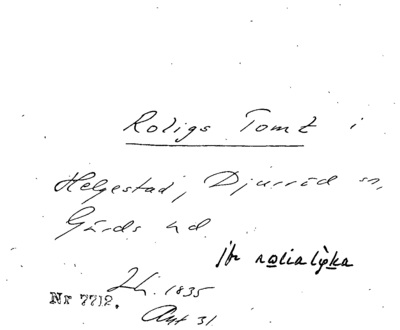 Roligs Tomt i
Helgestad, Djurröd sn,
Gärds hd
jfr rolialỳka
Lh. 1835
Nr 7712.
Akt 31